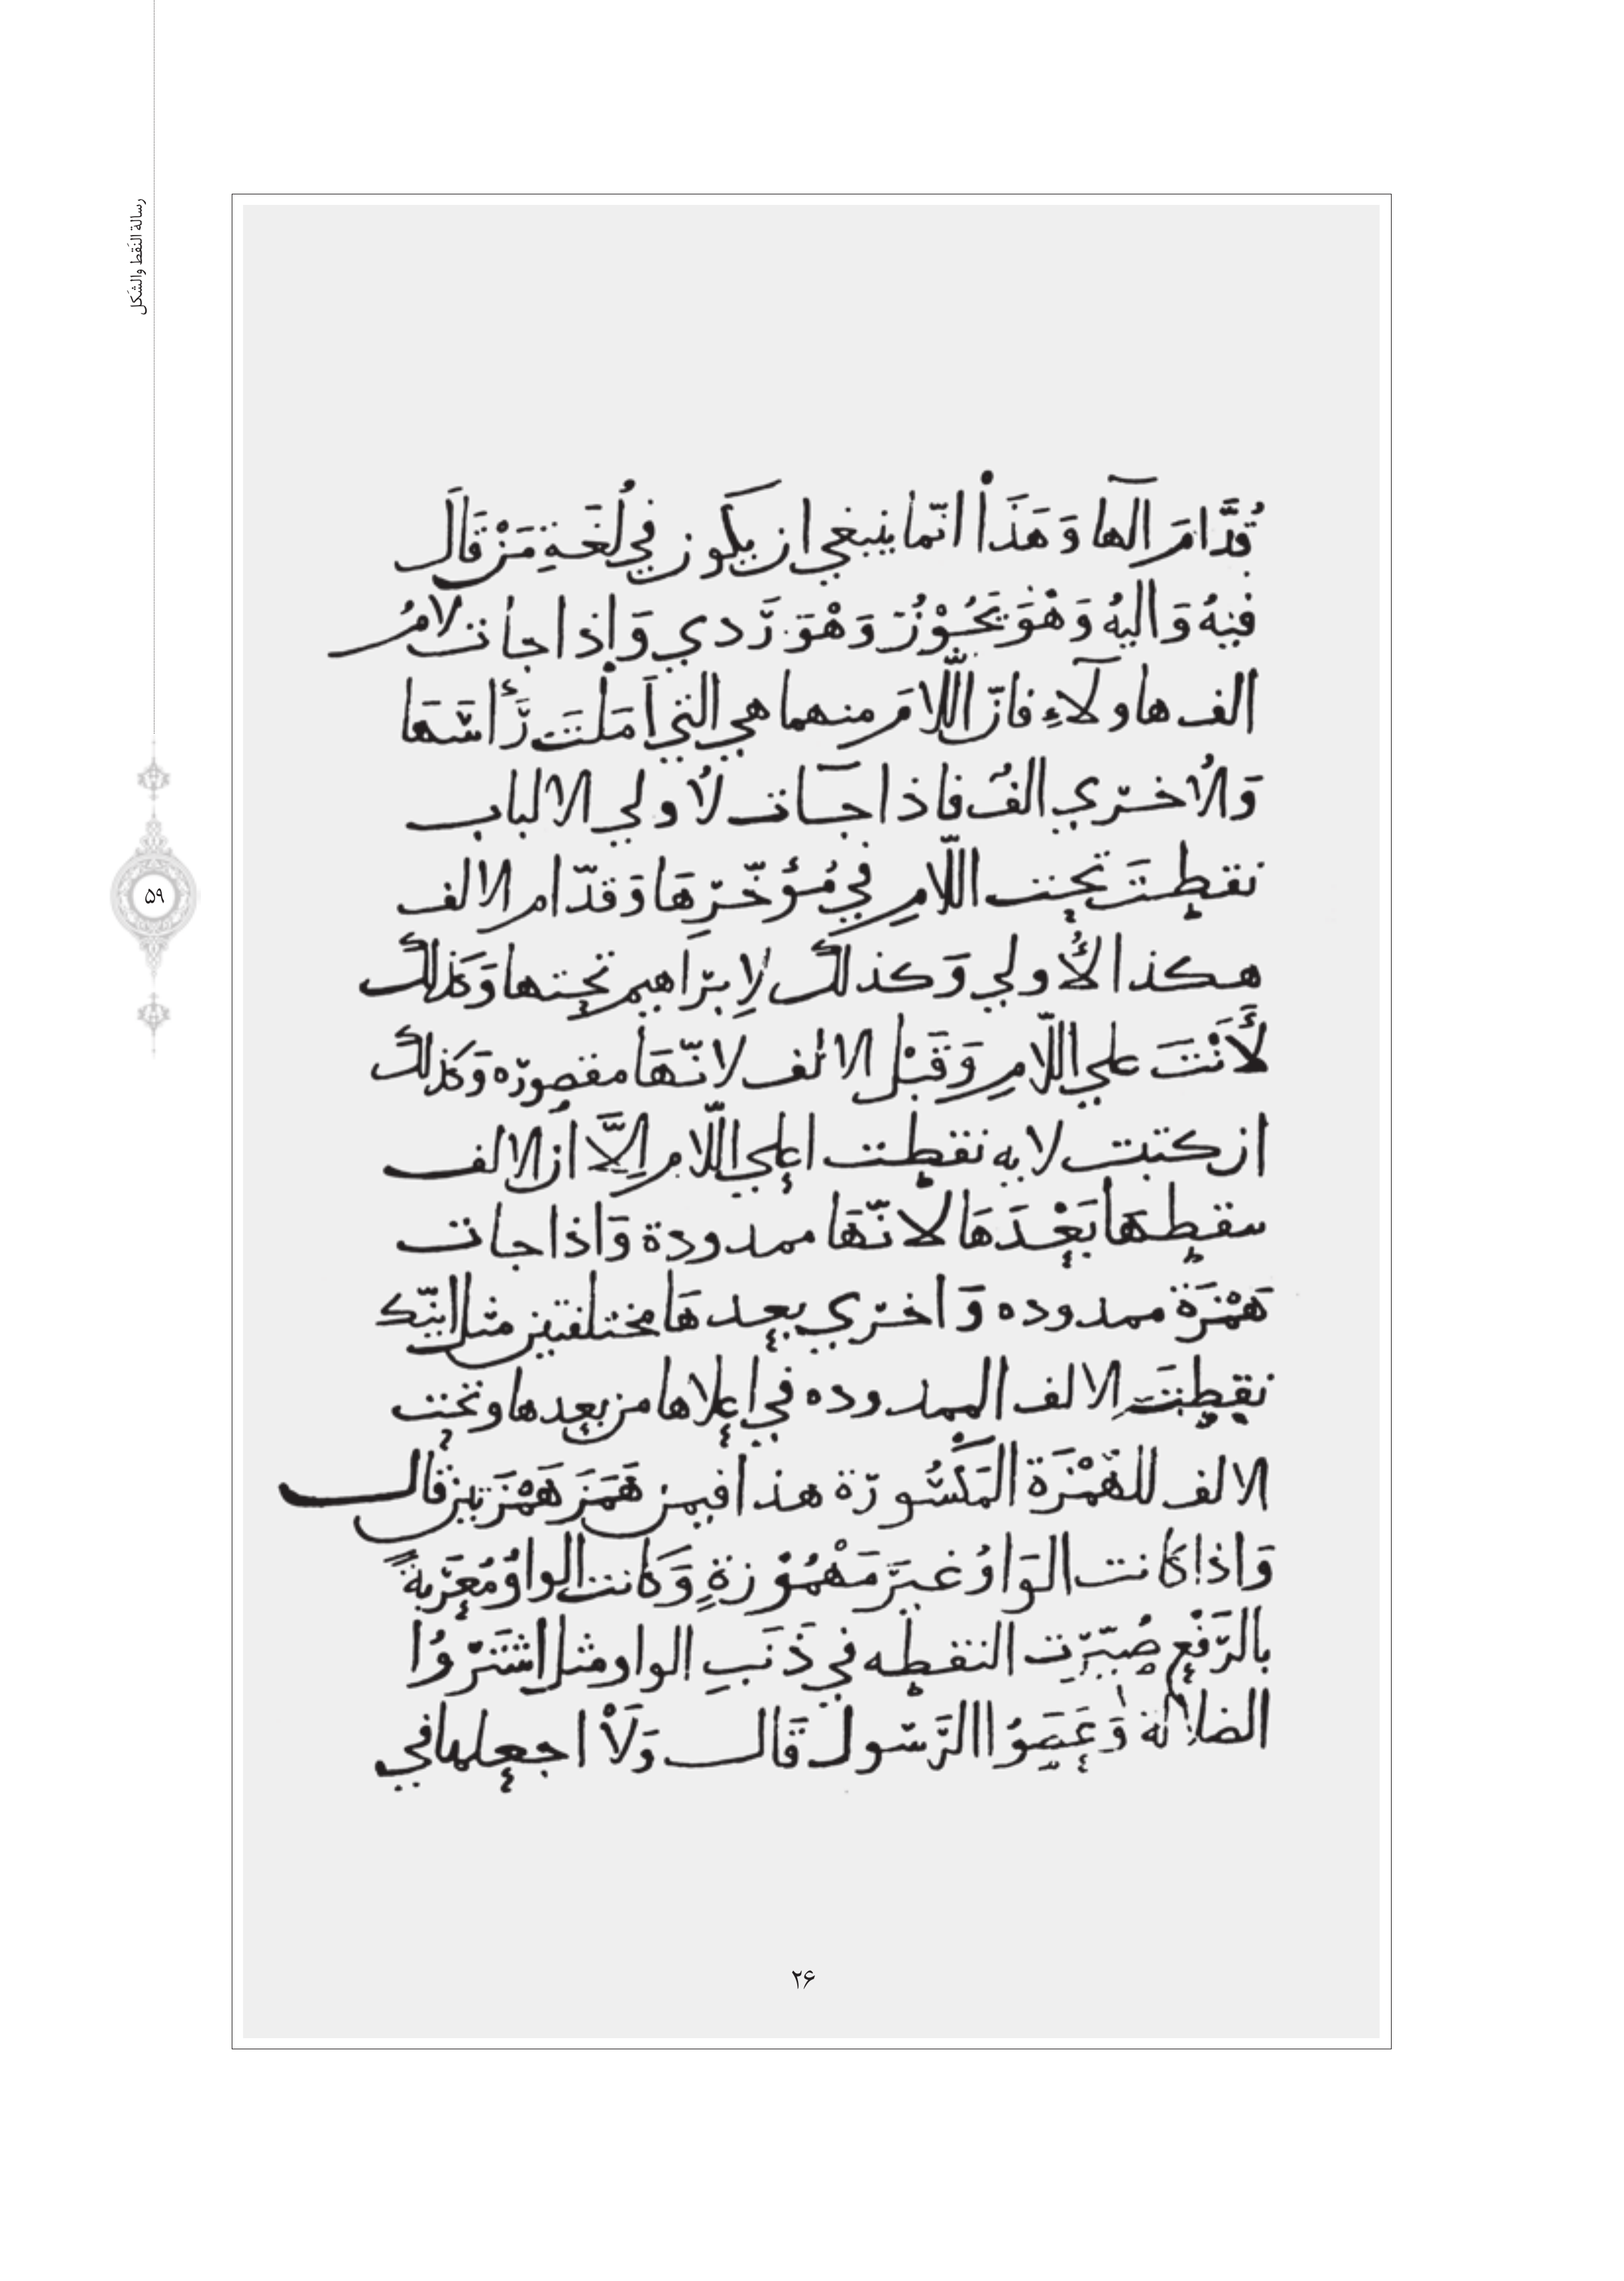 رسالة النَقط والشَكل
۵۹
قُدَّامَ الهآ وَهَذَا انّما ينبغي ان يكون في لُغَةِ مَنْ قَالَ
فِيهُ وَاليهُ وَهْوَ يَجُوْزُ وَهْوَ رَدي وَاِذا جات لامُ
الف هاولآءِ فانّ اللّامَ منهما هي التي اَمَلْتَ رَأسَهَا
وَالاُخرَي الفُ فاذا جآت لاُولي الالباب
نقطتَ تحت اللّامِ في مُؤخّرِهَا وَقدّام الالف
هكذا الأُولي وَكذلك لِابرَاهيم تحتها وَكَذلك
لَأَنْتَ علي اللّامِ وَقَبْل الالف لانّهَا مقصورَه وَكَذلك
ان كتبت لابه نقطت اعلي اللّامِ الّا ان الالف
سقطها بَعْدَهَا لانّهَا ممدودة وَاذا جات
هَمْزَة ممدوده وَاخرَي بعدهَا مختلفتين مثل اينّك
نقطتَ الالف الممدوده في اعلاها من بعدها وتحت
الالف للهَمْزَة المَكسُورَة هذا فيمن هَمَزَ هَمْزَتين قال
وَاذا كانت الوَاوُ غيرَ مَهْمُوْزةٍ وَكانت الواوُ مُعرَبةً
بالرَفْعِ صُيّرَت النقطه في ذَنَبِ الواو مثل اشتَرَوُا
الضلالة وَعَصَوُا الرَّسُول قَال وَلَا اجعلها في
۲۶